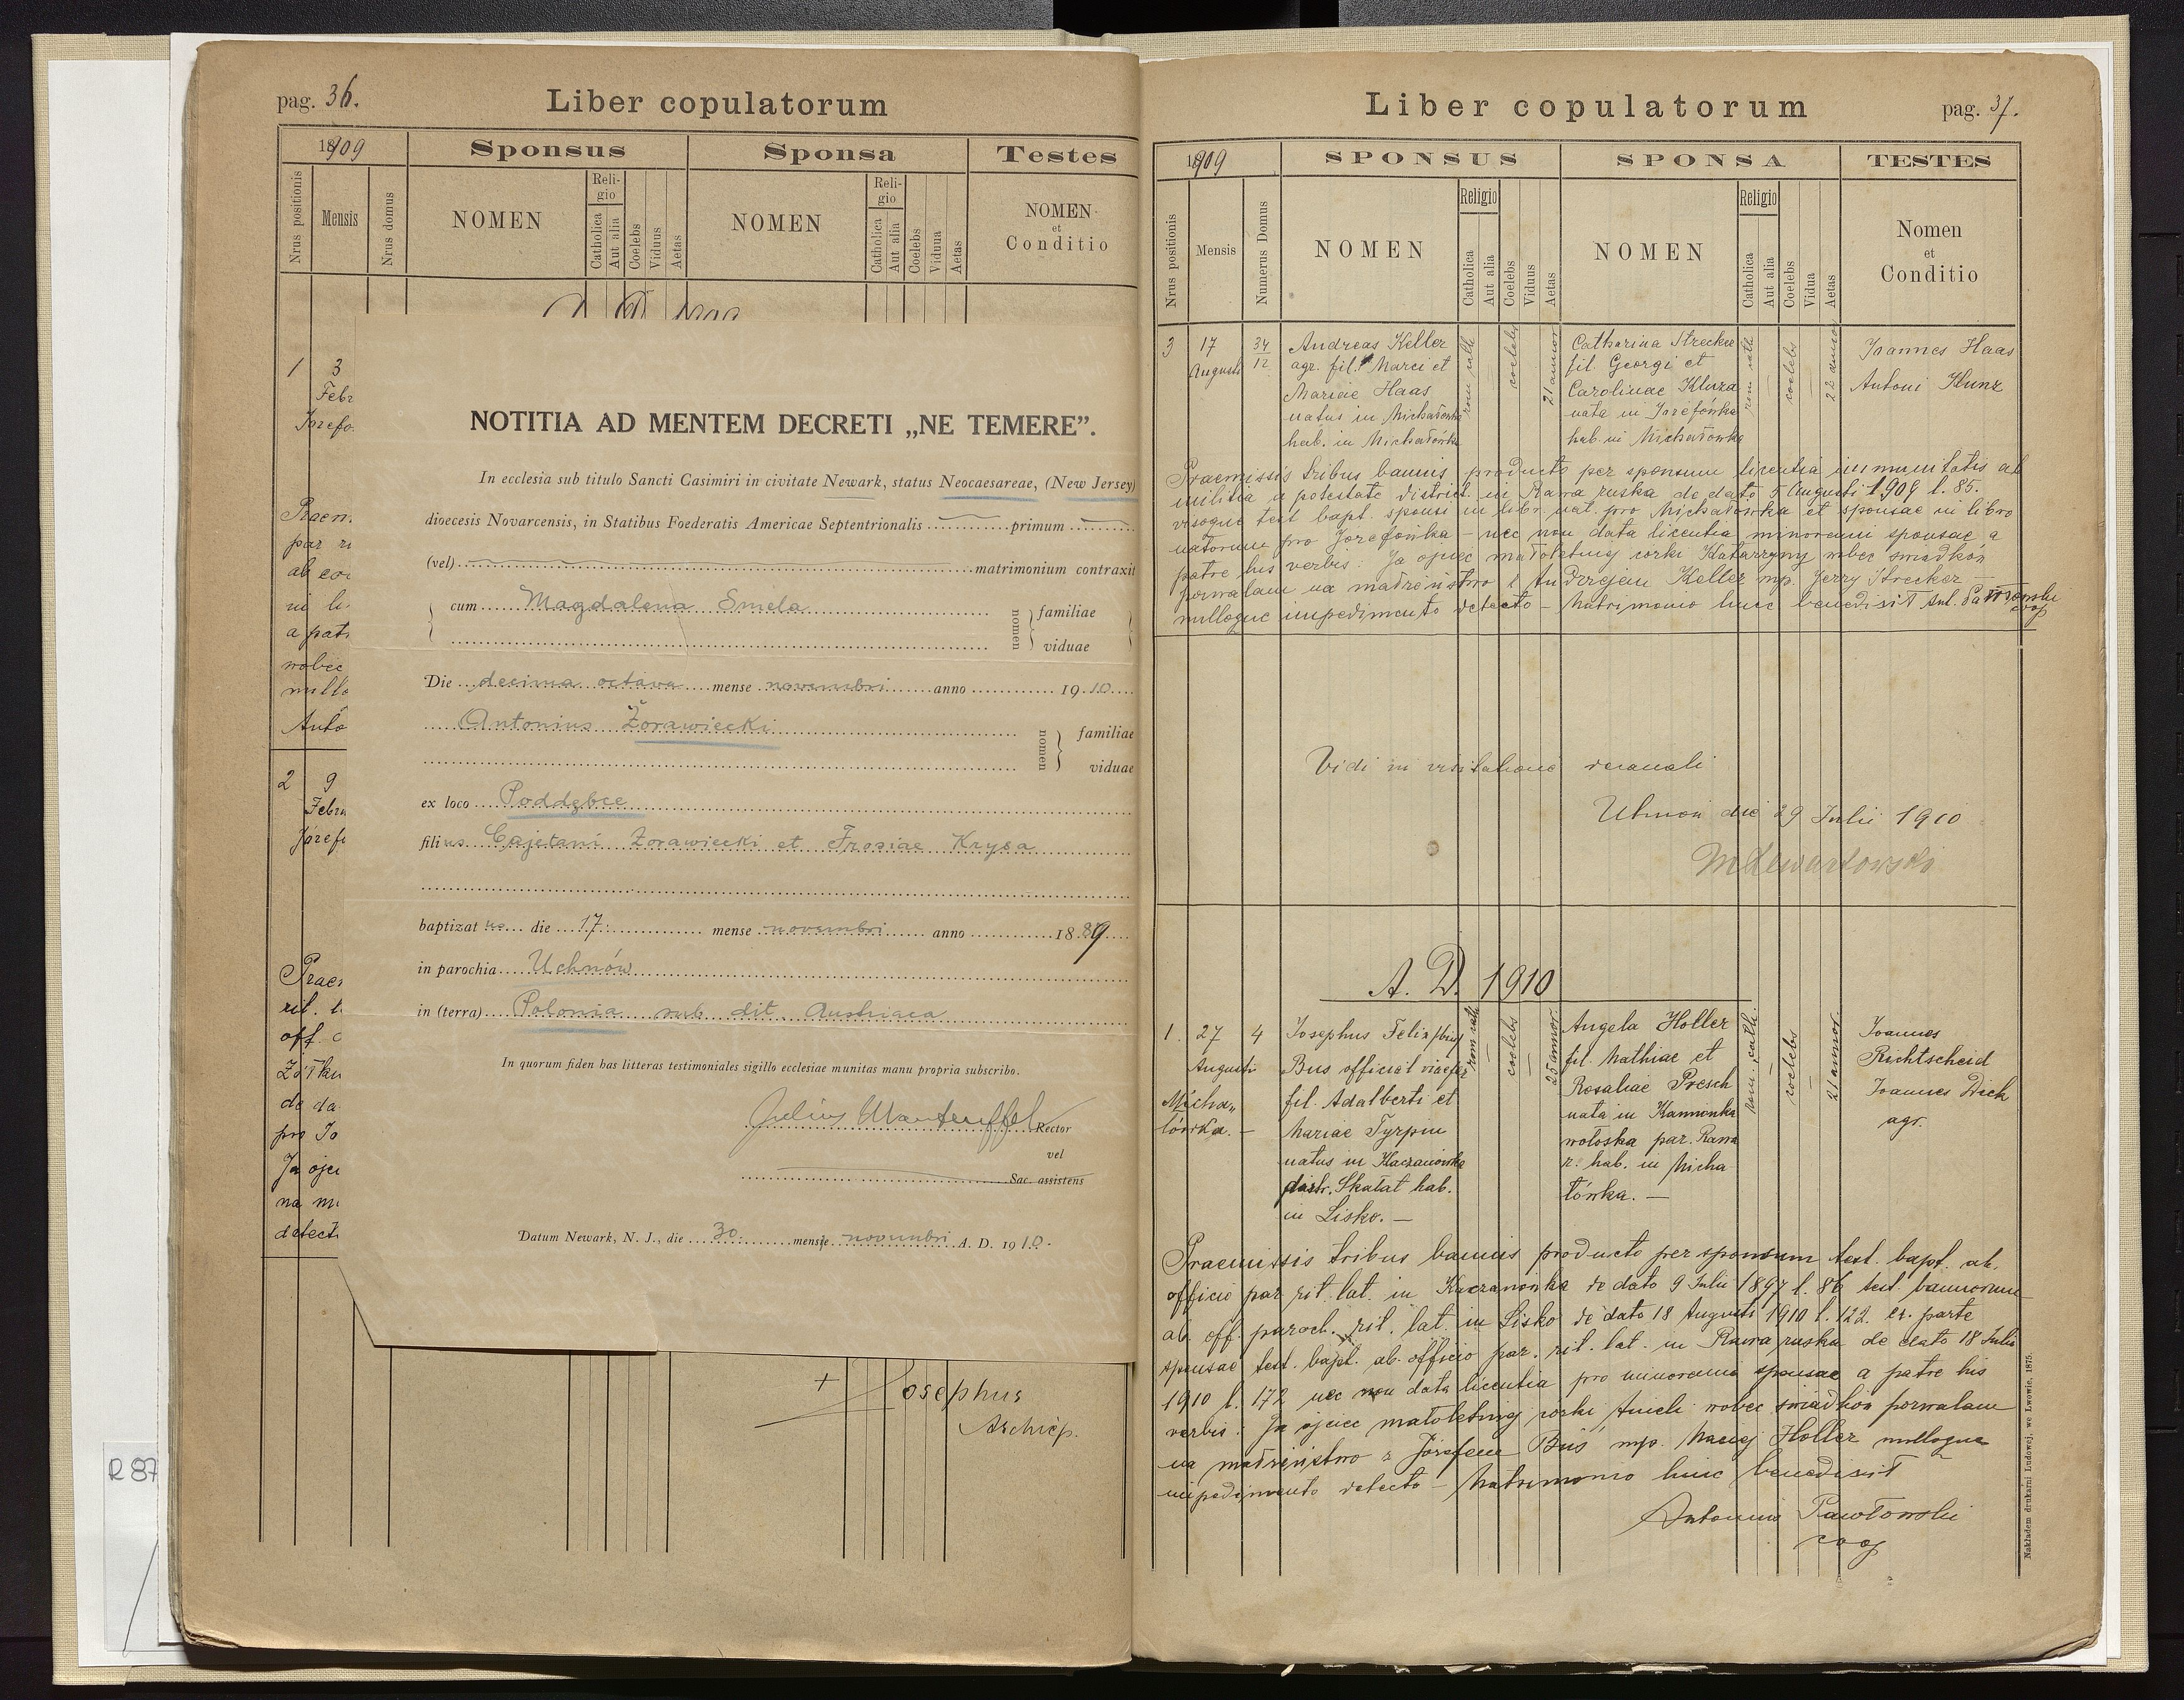 pag. 36.
Liber copulatorum
1909
Sponsus
Sponsa
Testes
Nrus positionis
Mensis
Nrus domus
NOMEN
Religio
Catholica
Aut alia
Coelebs
Viduus
Aetas
NOMEN
Religio
Catholica
Aut alia
Coelebs
Vidua
Aetas
NOMEN
et
Conditio
1 3
Febr
Jozefo
Praem
par
ab
a patr
wobec
nullo
Anto
2 9
Febru
Józef
Praem
rit.
off.
Żółkw
de da
pro Jo
Ja ojci
na
detect
NOTITIA AD MENTEM DECRETI „NE TEMERE”.
In ecclesia sub titulo Sancti Casimiri in civitate Newark, status Neocaesareae, (New Jersey)
dioecesis Novarcensis, in Statibus Foederatis Americae Septentrionalis primum
(vel) matrimonium contraxit
cum Magdalena Smela nomen familiae
viduae
Die decima octava mense novembri anno 1910
Antonius Żorawiecki nomen familiae
viduae
ex loco Poddębce
filius Cajetani Zorawiecki et Frosiae Krysa
baptizatus die 17 mense novembri anno 1889
in parochia Uchnów
in (terra) Polonia sub dit. Austriaca
In quorum fiden has litteras testimoniales sigillo ecclesiae munitas manu propria subscribo.
Julius Manteuffel Rector
vel
Sac. assistens
Datum Newark, N. J., die 30 mensje novembri A. D. 1910.
+ Josephus
Archiep.
Liber copulatorum
pag. 37.
1909
SPONSUS
SPONSA
TESTES
Nrus positionis
Mensis
Numerus Domus
NOMEN
Religio
Catholica
Aut alia
Coelebs
Viduus
Aetas
NOMEN
Religio
Catholica
Aut alia
Coelebs
Vidua
Aetas
Nomen
et
Conditio
3 17 Augusti 34/12
Andreas Keller
agr. fil. Marci et
Mariae Haas
natus in Michałówka
hab. in Michałówka
rom. cath
coelebs
21 annor
Catharina Strecker
fil. Georgi et
Carolinae Kluza
nata in Jozefówka
hab. in Michałówka
rom. cath
coelebs
22 annor
Joannes Haas
Antoni Kunz
Praemissis tribus bannis producto per sponsum licentia immunitatis ab
militia a potestate district. in Rawa ruska de dato 5 Augusti 1909 l. 85.
visoque test bapt. sponsi in libr. nat. pro Michałówka et sponsae in libro
natorum pro Jozefówka – nec non data licentia minorenni sponsae a
patre his verbis: Ja ojciec małoletniej córki Katarzyny wobec świadków
pozwalam na małżeństwo z Andrzejem Keller mp. Jerzy Strecker –
nulloque impedimento detecto – Matrimonio huic benedixit Ant. Pawłowski
coop
Vidi in visitatione decanali
Uhnow die 29 Julii 1910
MLewartowski
A. D. 1910
1. 27 Augusti 4
Michałówka. –
Josephus Felix
Bus official
fil. Adalberti et
Mariae Tyrpin
natus in Kaczanówka
distr. Skałat hab.
in Lisko. –
rom. cath
coelebs
25 annor.
Angela Holler
fil. Mathiae et
Rosaliae Presch
nata in Kamionka
wołoska par. Rawa
r. hab. in Micha
łówka. –
rom. cath.
coelebs
21 annor.
Joannes
Richtscheid
Joannes Dick
agr.
Praemissis tribus bannis producto per sponsum test. bapt. ab.
officio par rit. lat. in Kaczanówka de dato 9 Julii 1897 l. 86 test. bannorum
ab. off. paroch. rit. lat. in Lisko de dato 18 Augusti 1910 l. 122. ex parte
sponsae test. bapt. ab. officio par. rit. lat. in Rawa ruska de dato 18 Julii
1910 l. 172 nec non data licentia pro minorenni sponsae a patre his
verbis: Ja ojciec małoletniej córki Anieli wobec świadków pozwalam
na małżeństwo z Józefem Buś mp. Maciej Holler nulloque
impedimento detecto – Matrimonio huic benedixit
Antonius Pawłowski
coop
Nakładem drukarni Ludowej, we Lwowie, 1875.
R 87